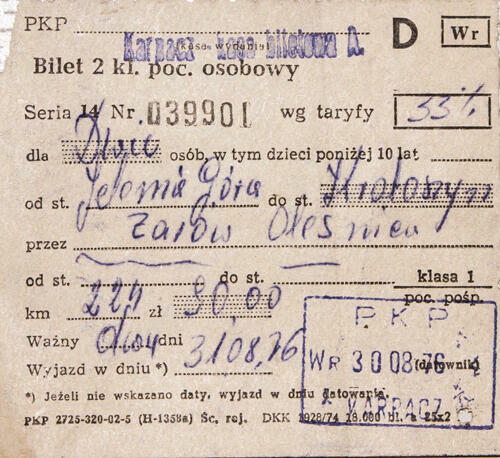 PKP D Wr
Karpacz kasa biletowa A.
kasa wydania
Bilet 2 kl. poc. osobowy
Seria 14 Nr. 039901 wg taryfy 33%
dla Dwie osób, w tym dzieci poniżej 10 lat
od st. Jelenia Góra do st. Krotoszyn
przez Żarów Oleśnica
od st. do st. klasa 1
poc. pośp.
km 224 zł 90,00
Ważny dwa dni
Wyjazd w dniu *) 31.08.76
PKP
WR 30 08 76 (datownik)
KARPACZ
*) Jeżeli nie wskazano daty, wyjazd w dniu datowania.
PKP 2725-320-02-5 (H-1358a) Śc, rej. DKK 1928/74 18.000 bl. a 25x2